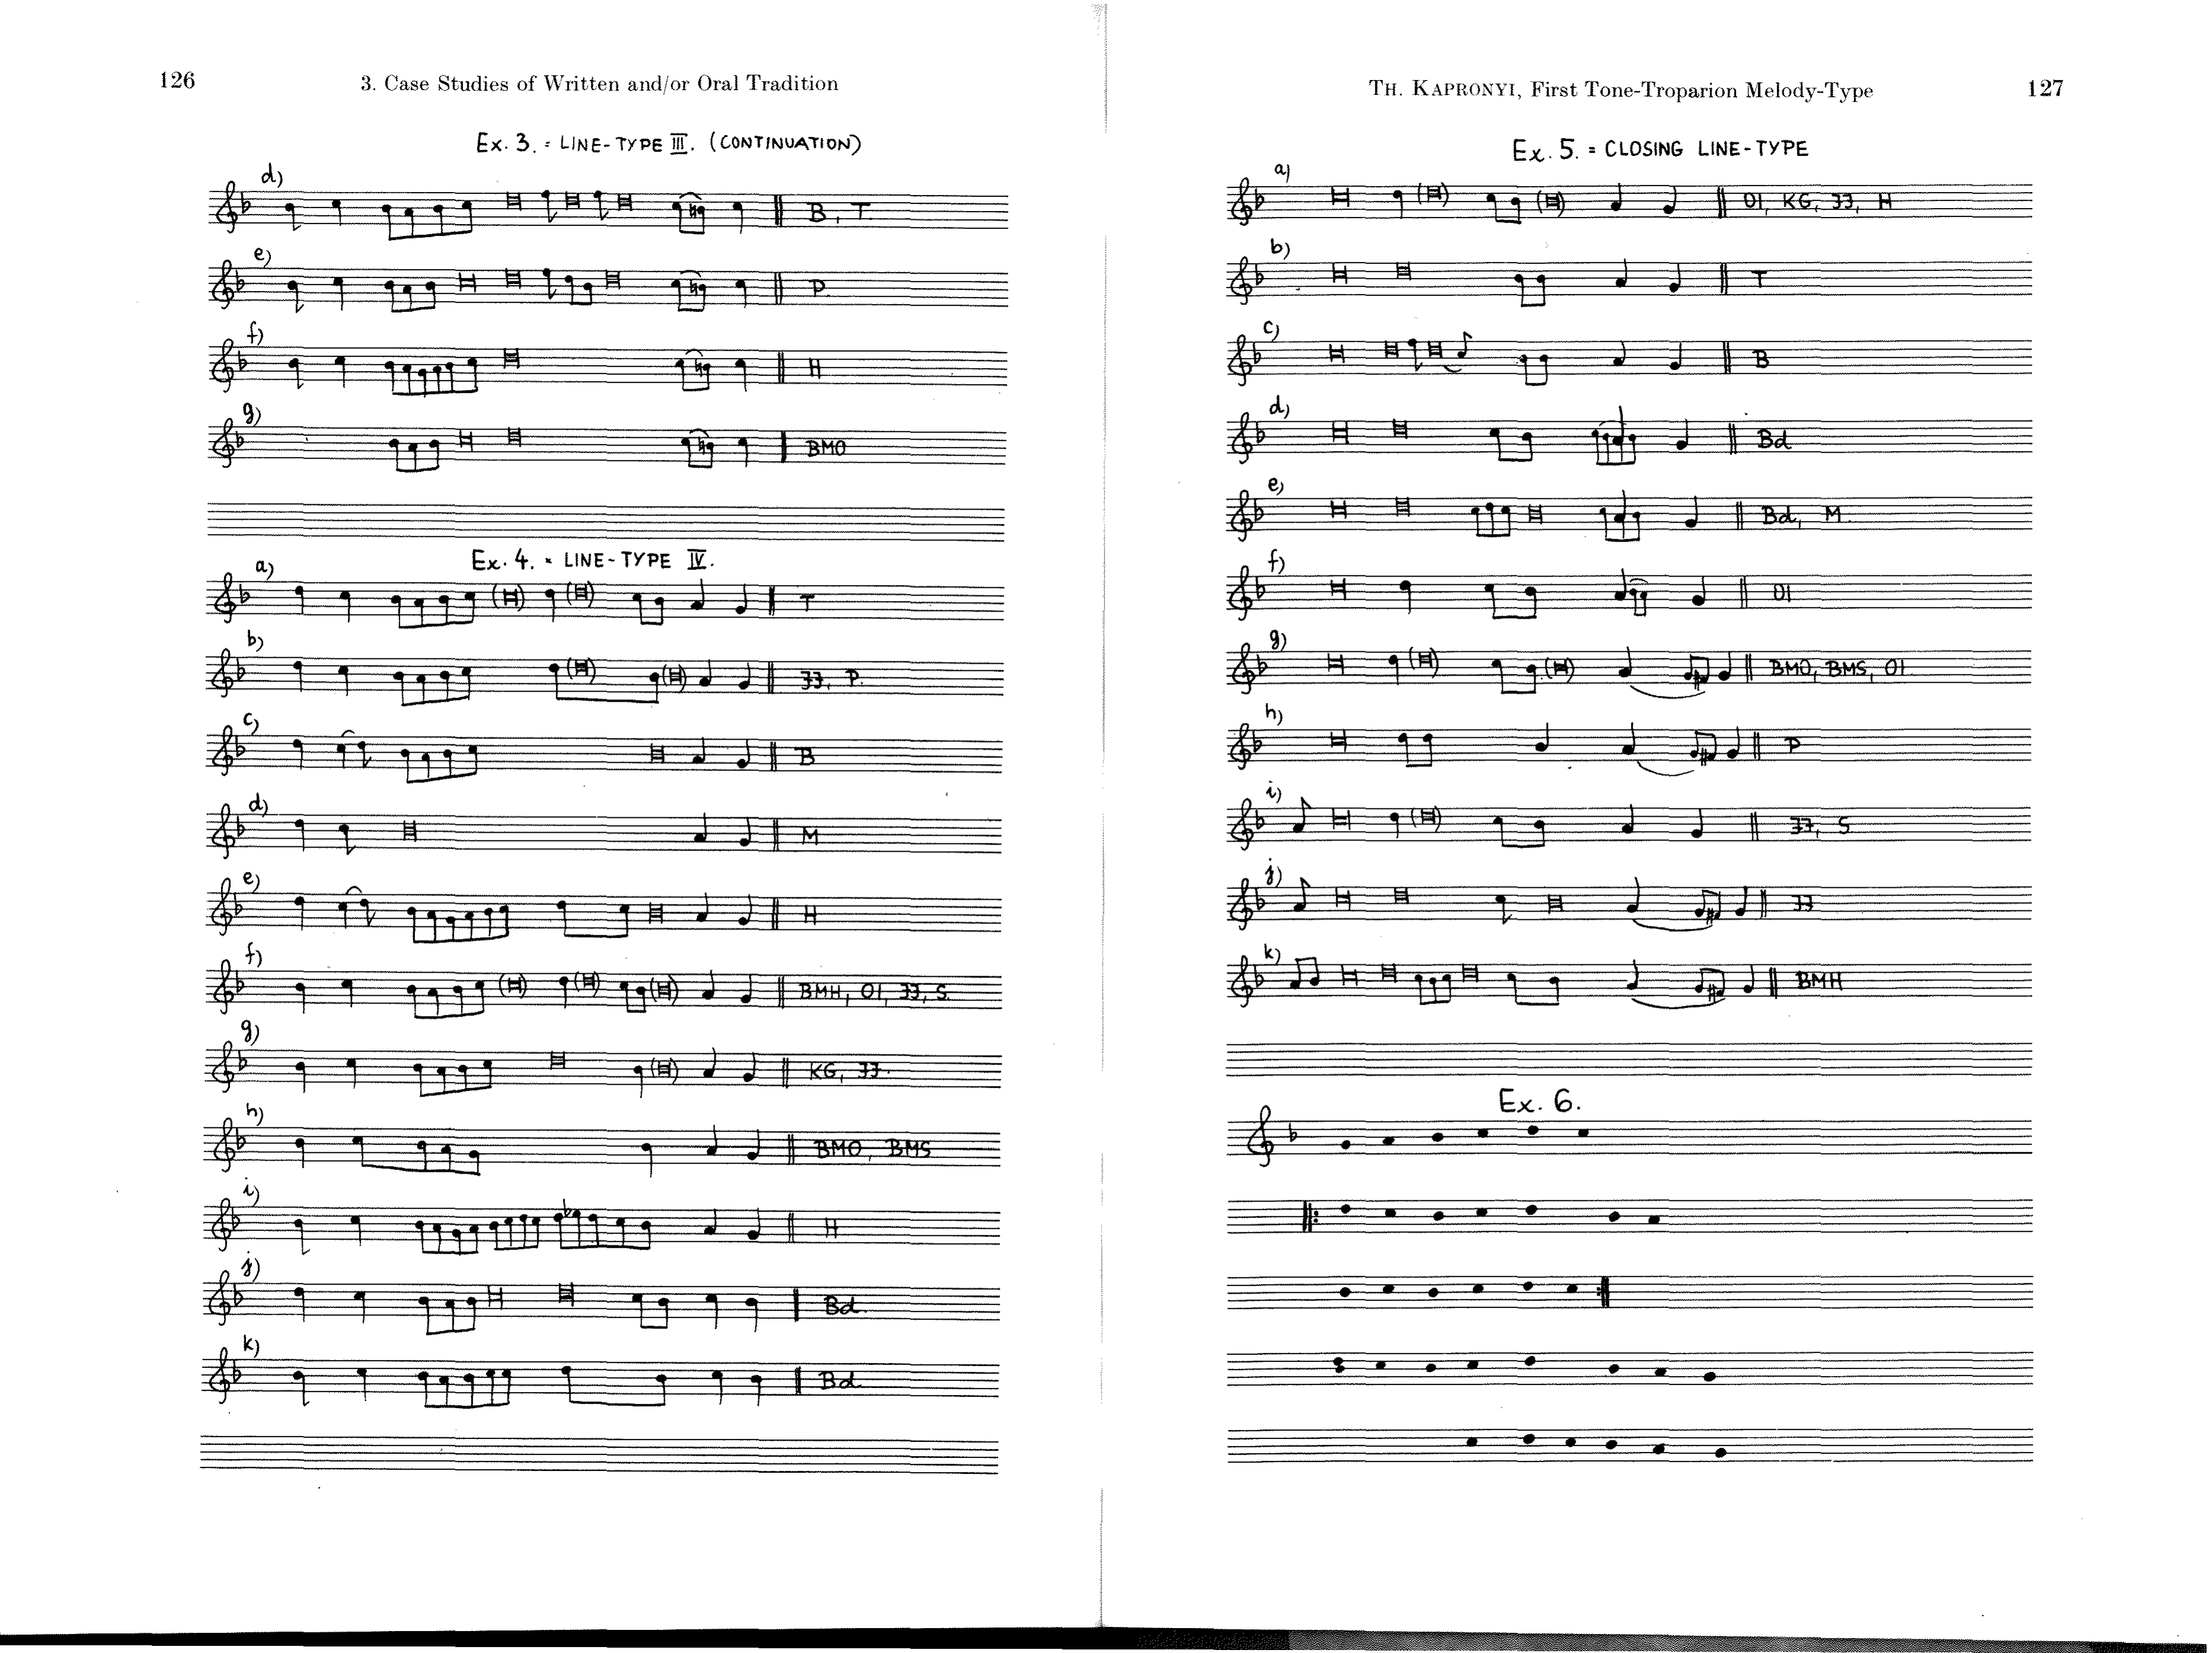 126
3. Case Studies of Written and/or Oral Tradition
Ex. 3. = LINE-TYPE III. (CONTINUATION)
d)
B, T
e)
P
f)
H
g)
BMO
Ex. 4. = LINE-TYPE IV.
a)
T
b)
JJ, P.
c)
B
d)
M
e)
H
f)
BMH, OI, JJ, S.
g)
KG, JJ.
h)
BMO, BMS
i)
H
j)
Bd.
k)
Bd.
TH. KAPRONYI, First Tone-Troparion Melody-Type
127
Ex. 5. = CLOSING LINE-TYPE
a)
OI, KG, JJ, H
b)
T
c)
B
d)
Bd
e)
Bd, M.
f)
OI
g)
BMO, BMS, OI.
h)
P
i)
JJ, S
j)
JJ
k)
BMH
Ex. 6.